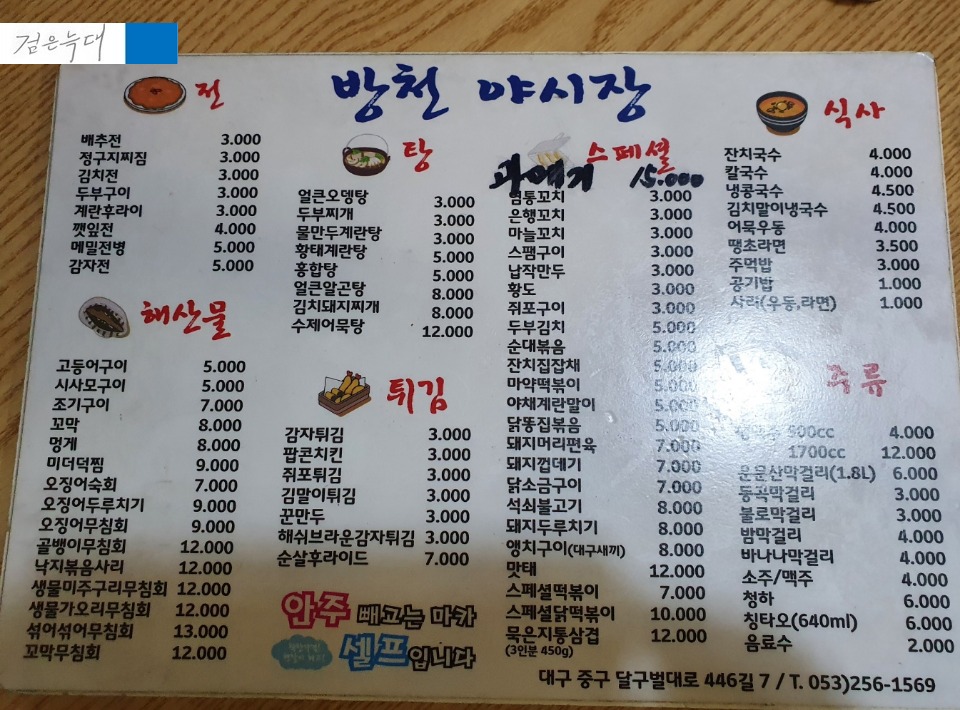 검은늑대
방천 야시장
전
배추전 3.000
정구지찌짐 3.000
김치전 3.000
두부구이 3.000
계란후라이 3.000
깻잎전 4.000
메밀전병 5.000
감자전 5.000
해산물
고등어구이 5.000
시사모구이 5.000
조기구이 7.000
꼬막 8.000
멍게 8.000
미더덕찜 9.000
오징어숙회 7.000
오징어두루치기 9.000
오징어무침회 9.000
골뱅이무침회 12.000
낙지볶음사리 12.000
생물미주구리무침회 12.000
생물가오리무침회 12.000
섞어섞어무침회 13.000
꼬막무침회 12.000
탕
얼큰오뎅탕 3.000
두부찌개 3.000
물만두계란탕 3.000
황태계란탕 5.000
홍합탕 5.000
얼큰알곤탕 8.000
김치돼지찌개 8.000
수제어묵탕 12.000
튀김
감자튀김 3.000
팝콘치킨 3.000
쥐포튀김 3.000
김말이튀김 3.000
꾼만두 3.000
해쉬브라운감자튀김 3.000
순살후라이드 7.000
안주 빼고는 마카
셀프입니다
스페셜
과메기 15.000
염통꼬치 3.000
은행꼬치 3.000
마늘꼬치 3.000
스팸구이 3.000
납작만두 3.000
황도 3.000
쥐포구이 3.000
두부김치 5.000
순대볶음 5.000
잔치집잡채 5.000
마약떡볶이 5.000
야채계란말이 5.000
닭똥집볶음 5.000
돼지머리편육 7.000
돼지껍데기 7.000
닭소금구이 7.000
석쇠불고기 8.000
돼지두루치기 8.000
앵치구이(대구새끼) 8.000
맛태 12.000
스페셜떡볶이 7.000
스페셜닭떡볶이 10.000
묵은지통삼겹 12.000
(3인분 450g)
식사
잔치국수 4.000
칼국수 4.000
냉콩국수 4.500
김치말이냉국수 4.500
어묵우동 4.000
땡초라면 3.500
주먹밥 3.000
공기밥 1.000
사리(우동,라면) 1.000
주류
500cc 4.000
1700cc 12.000
운문산막걸리(1.8L) 6.000
동곡막걸리 3.000
불로막걸리 3.000
밤막걸리 4.000
바나나막걸리 4.000
소주/맥주 4.000
청하 6.000
칭타오(640ml) 6.000
음료수 2.000
대구 중구 달구벌대로 446길 7 / T. 053)256-1569